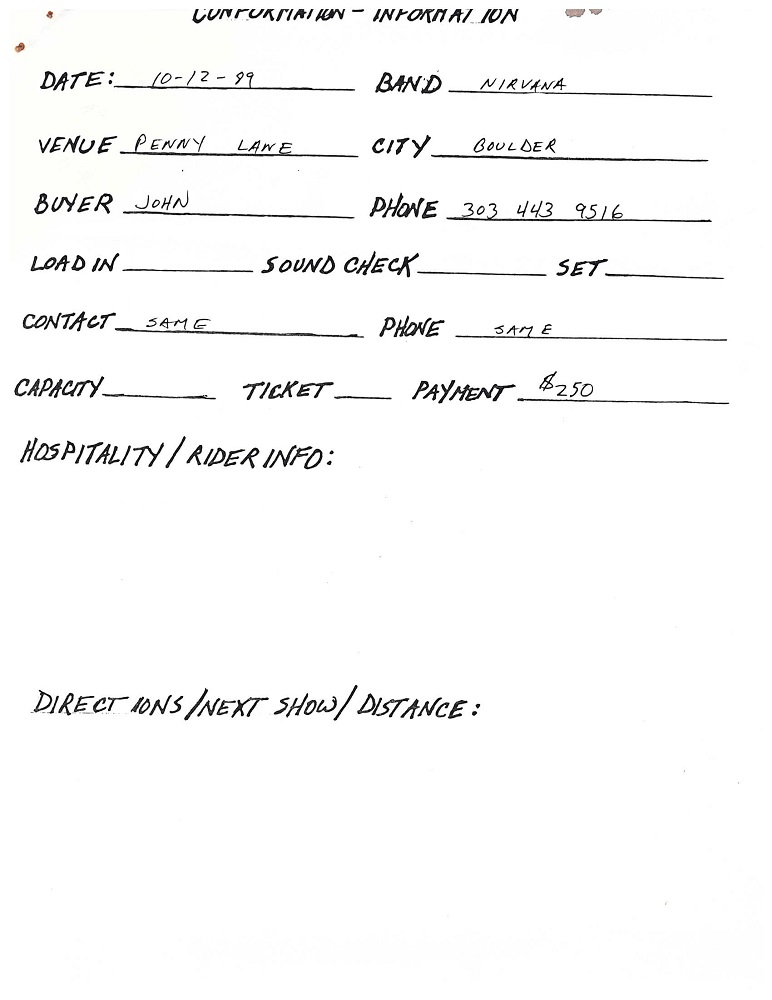 CONFORMATION - INFORMATION
DATE: 10-12-89 BAND NIRVANA
VENUE PENNY LANE CITY BOULDER
BUYER JOHN PHONE 303 443 9516
LOAD IN SOUND CHECK SET
CONTACT SAME PHONE SAME
CAPACITY TICKET PAYMENT $250
HOSPITALITY/RIDER INFO:
DIRECTIONS/NEXT SHOW/DISTANCE: